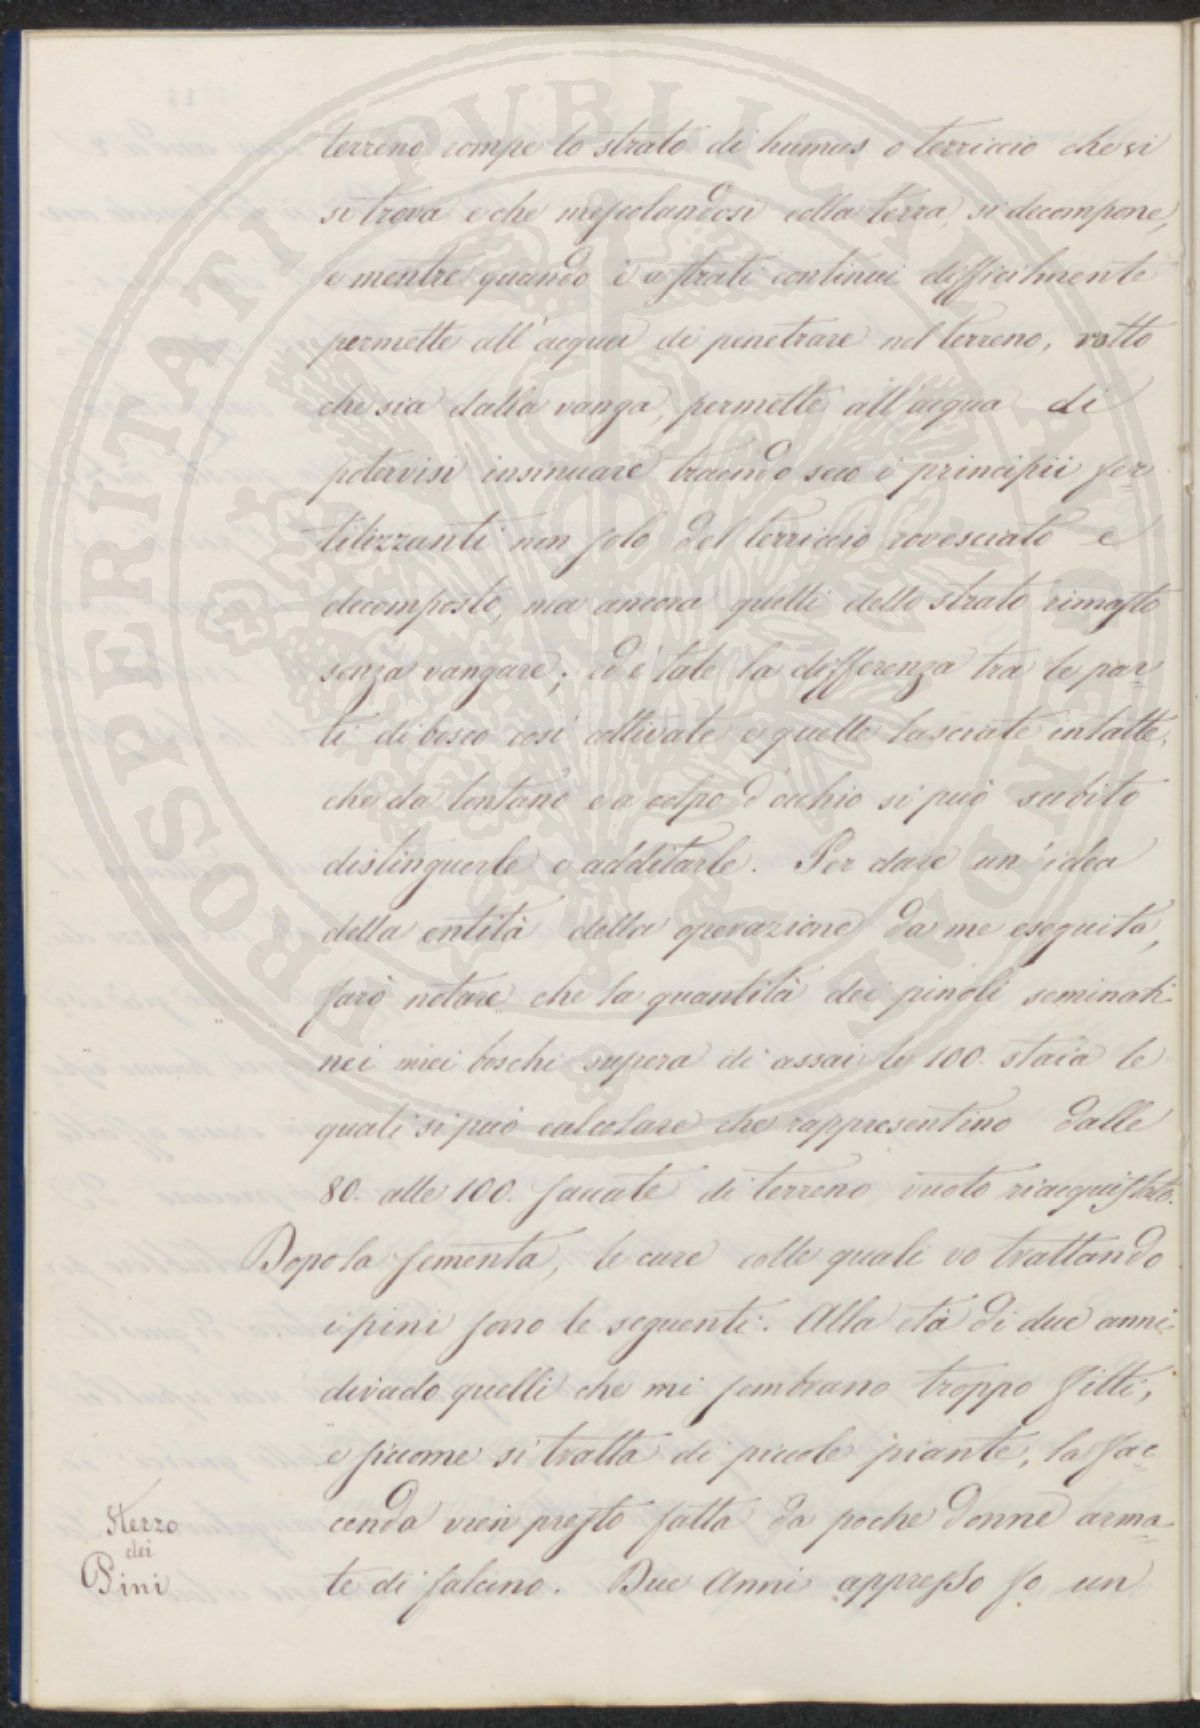 terreno, rompe lo strato di humus o terriccio che vi
si trova e che mescolandosi colla terra, si decompone,
e mentre quando è a strati continui difficilmente
permette all'acqua di penetrare nel terreno, rotto
che sia dalla vanga, permette all'acqua di
potervisi insinuare traendo seco i principii fer=
tilizzanti non solo del terriccio rovesciato e
decomposto, ma ancora quelli dello strato rimasto
senza vangare; ed è tale la differenza tra le par=
ti di bosco così coltivate e quelle lasciate intatte,
che da lontano e a colpo d'occhio si può subito
distinguerle e additarle. Per dare un'idea
della entità della operazione da me eseguita,
farò notare che la quantità dei pinoli seminati
nei miei boschi supera di assai le 100. staia le
quali si può calcolare che rappresentino dalle
80. alle 100. saccate di terreno vuoto riacquistato.
Dopo la sementa, le cure colle quali vo trattando
i pini sono le seguenti. Alla età di due anni
dirado quelli che mi sembrano troppo fitti,
e siccome si tratta di piccole piante, la fac=
cenda vien presto fatta da poche donne arma=
te di falcino. Due Anni appresso fo un
Sterzo
dei
Pini
PROSPERITATI PVBLICAE AVGENDAE